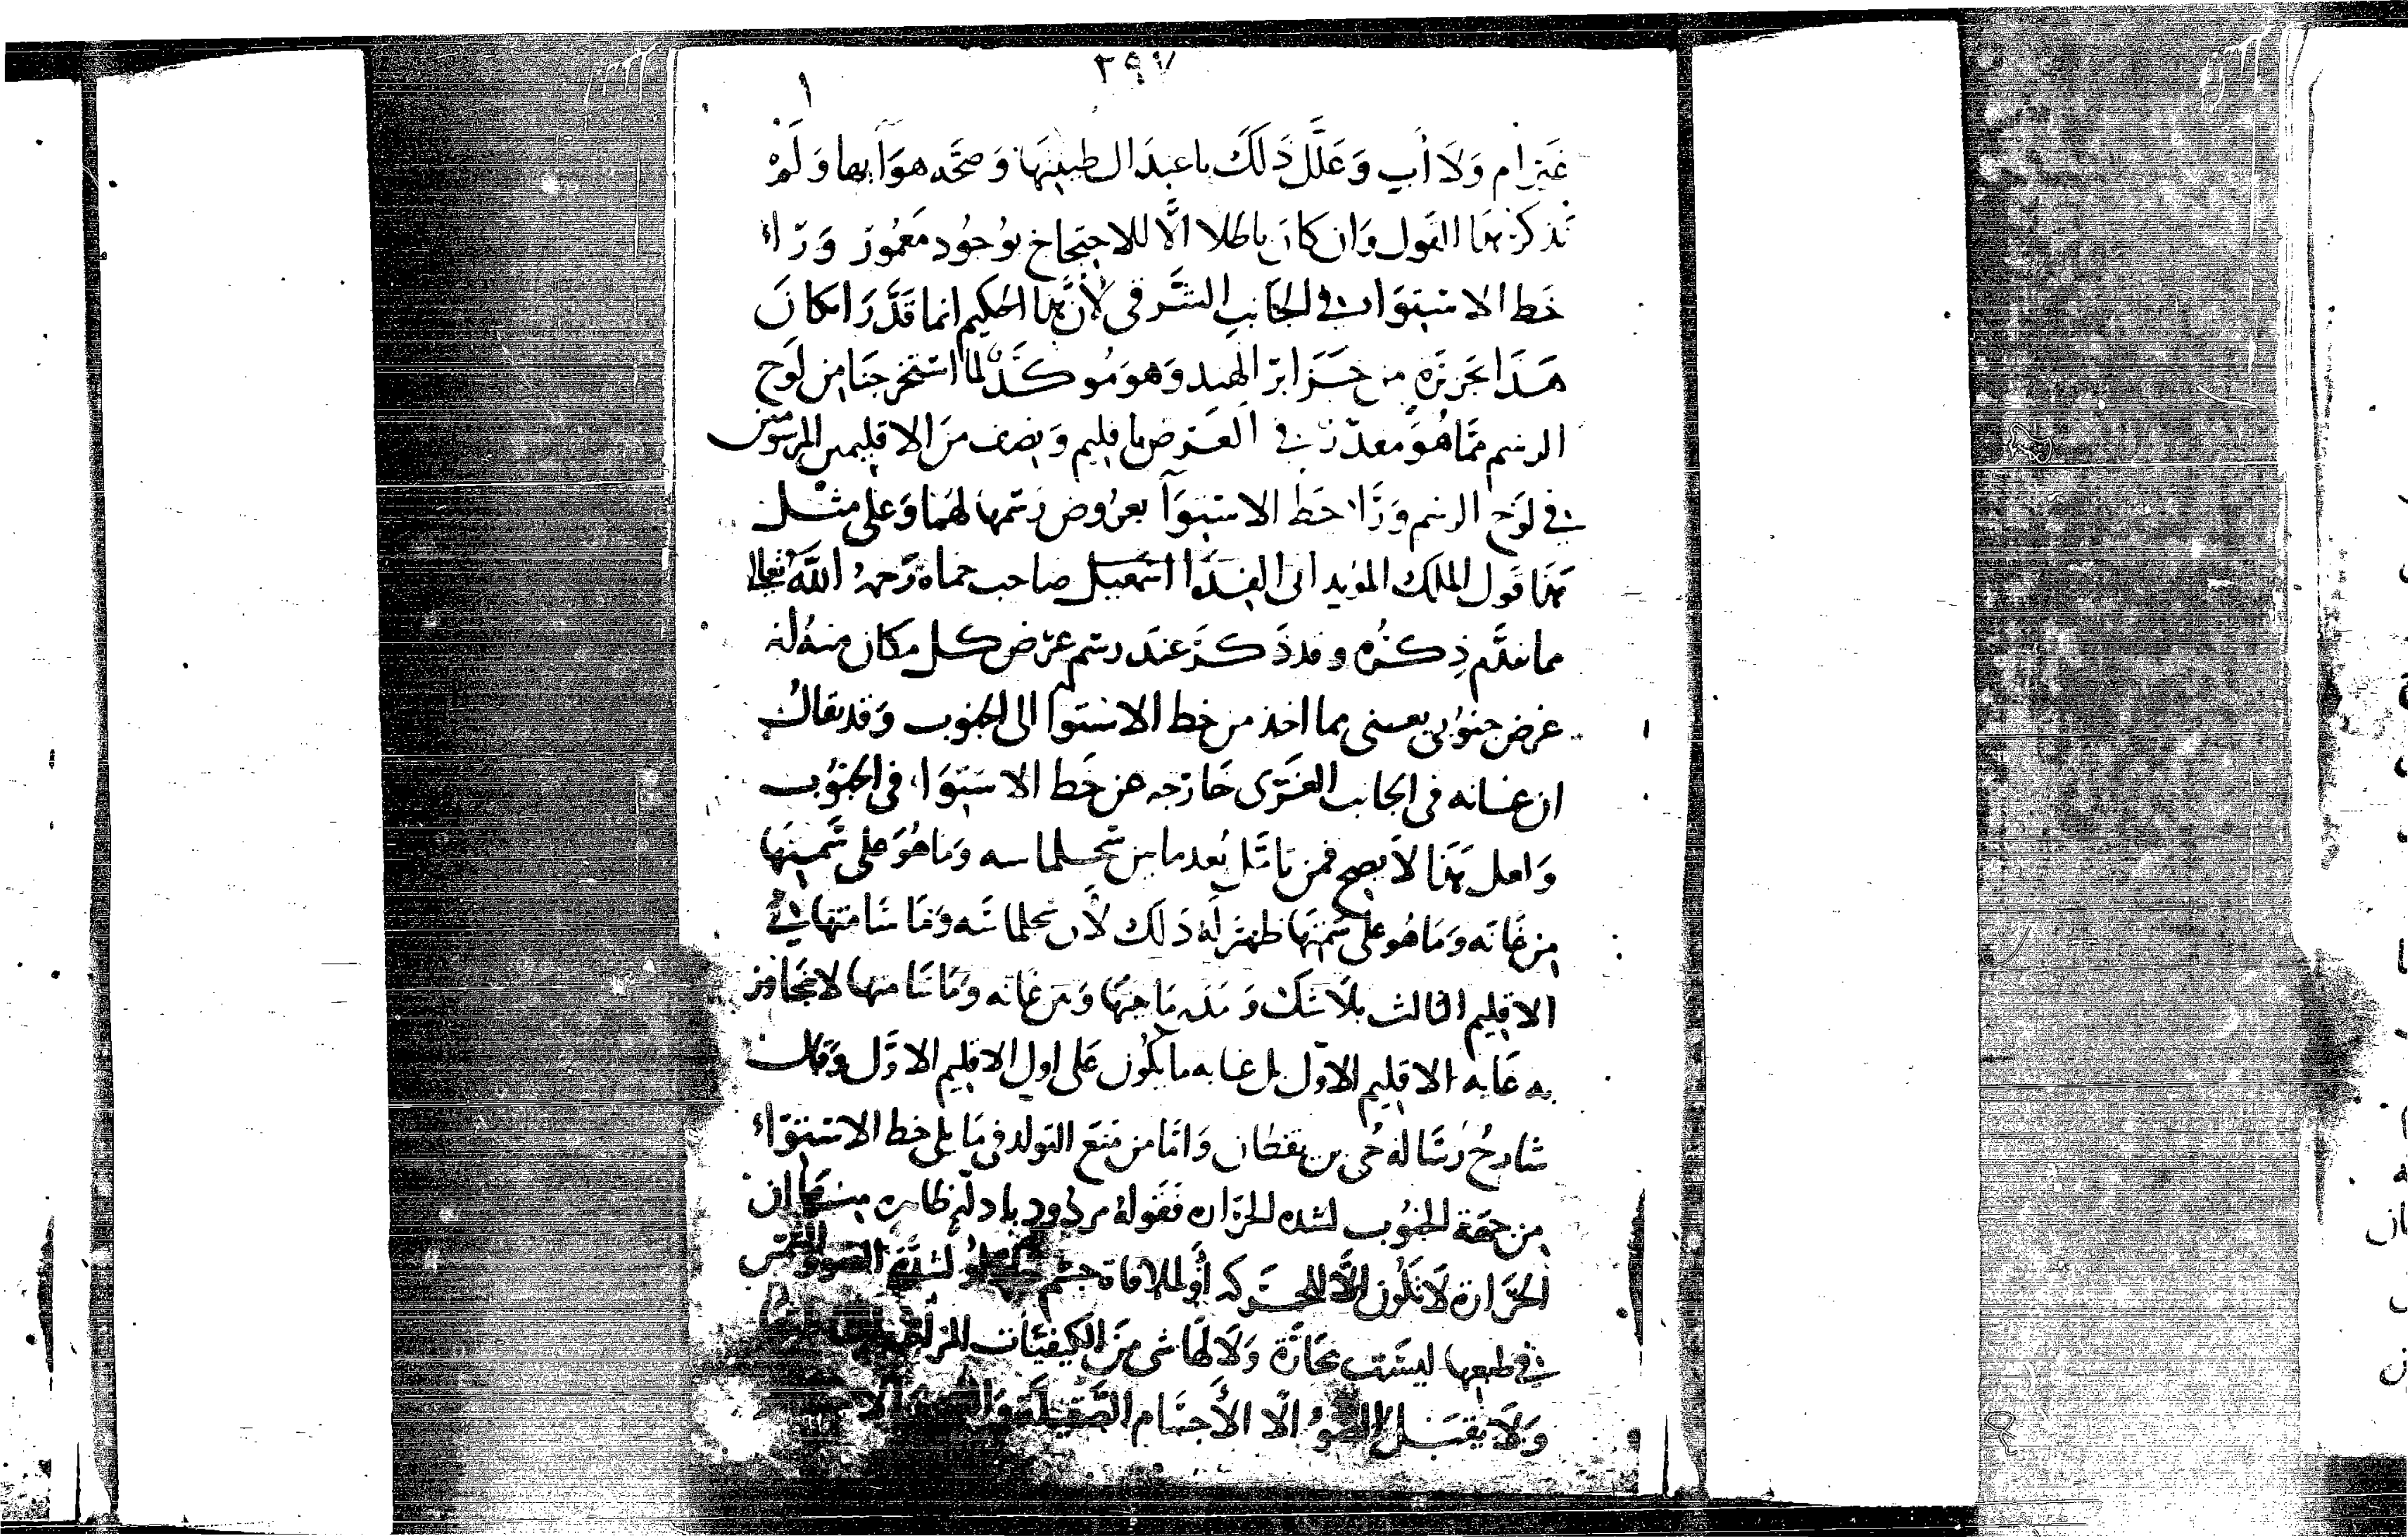 ٢٩٧
١
غير ام ولا أب وعلل ذلك باعتدال طينتها وصحة هوآيها ولم
نذكر هذا القول وان كان باطلا الّا للاحتجاج بوجود معمور ورآء
خط الاستوا في الجانب الشرقي لأن هذا الحكيم انما قدّر امكان
هذا بجزيرة من جزاير الهند وهو موكد لما استخرجنا من لوح
الرسم مما هو مقدر في العرض باقليم ونصف من الاقليمين المرسومين
في لوح الرسم ورا خط الاستوآ بعروض رسمها لهما وعلى مثل
هذا قول الملك المؤيد ابى الفدا اسمعيل صاحب حماه رحمه الله تعالى
مما تقدّم ذكره وقد ذكر عند رسم عرض كل مكان منه له
عرض جنوبى يعنى مما اخذ من خط الاستوا الى الجنوب وقد يقال
ان غانه في الجانب الغربى خارجه عن خط الاستوا في الجنوب
ولعل هذا لا يصح فمن تأمّل بعد ما بين سجلماسه وما هو على سمتها
من غانه وما هو على سمتها ظهر له ذلك لأن سجلماسه وما سامتها في
الاقليم الثالث بلا شك و ومن غانه وما سامتها لا يتجاوز
به غايه الاقليم الاوّل بل غايه ما يكون على اول الاقليم الاوّل وقال
شارح رسالة حي بن يقظان وأمّا من منع التولد في ما يلى خط الاستوآء
من جهة الجنوب لشده الحراره فقوله مردود بادلّه ظاهره منها ان
الحرارة لا تكون الّا للحركه أو لملاقاة جسم الضوو الشمس
في طبعها ليست بحارّة ولا لها شى من الكيفيّات
ولا يقبل الضوء الّا الأجسام الصّقيلة